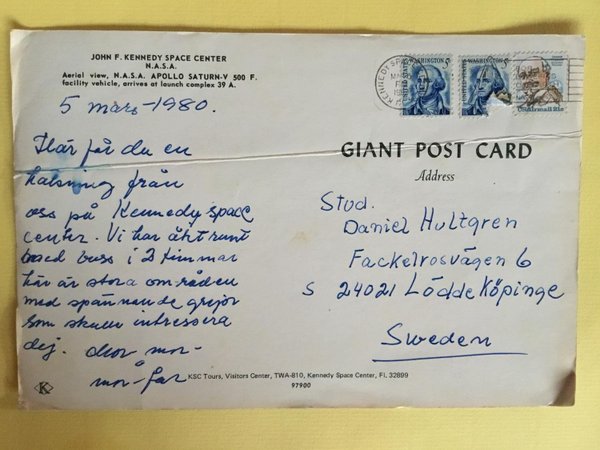 JOHN F. KENNEDY SPACE CENTER
N.A.S.A.
Aerial view, N.A.S.A. APOLLO SATURN-V 500 F.
facility vehicle, arrives at launch complex 39 A.
5 mars - 1980.
Här får du en
hälsning från
oss på Kennedy space
center. Vi har åkt runt
med buss i 2 timmar
här är stora områden
med spännande grejor
som skulle intressera
dig. mor mor-
mor-far
WASHINGTON
WASHINGTON
KENNEDY SP
GIANT POST CARD
Address
Stud.
Daniel Hultgren
Fackelrosvägen 6
S 24021 Löddeköpinge
Sweden
KSC Tours, Visitors Center, TWA-810, Kennedy Space Center, Fl. 32899
97900
K